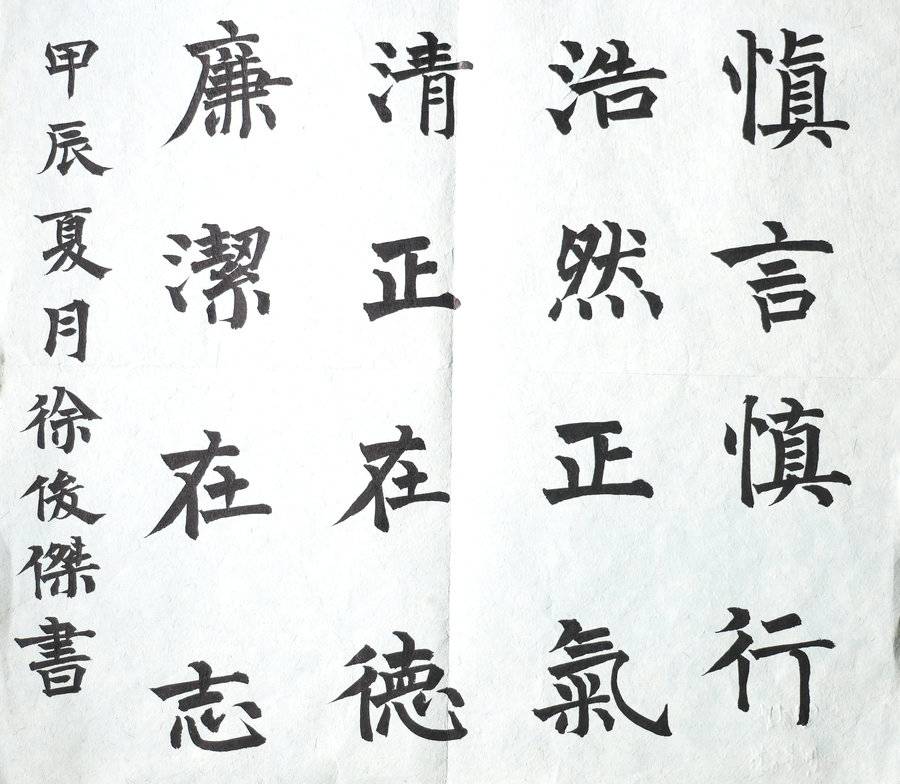 慎言慎行
浩然正氣
清正在德
廉潔在志
甲辰夏月徐俊傑書